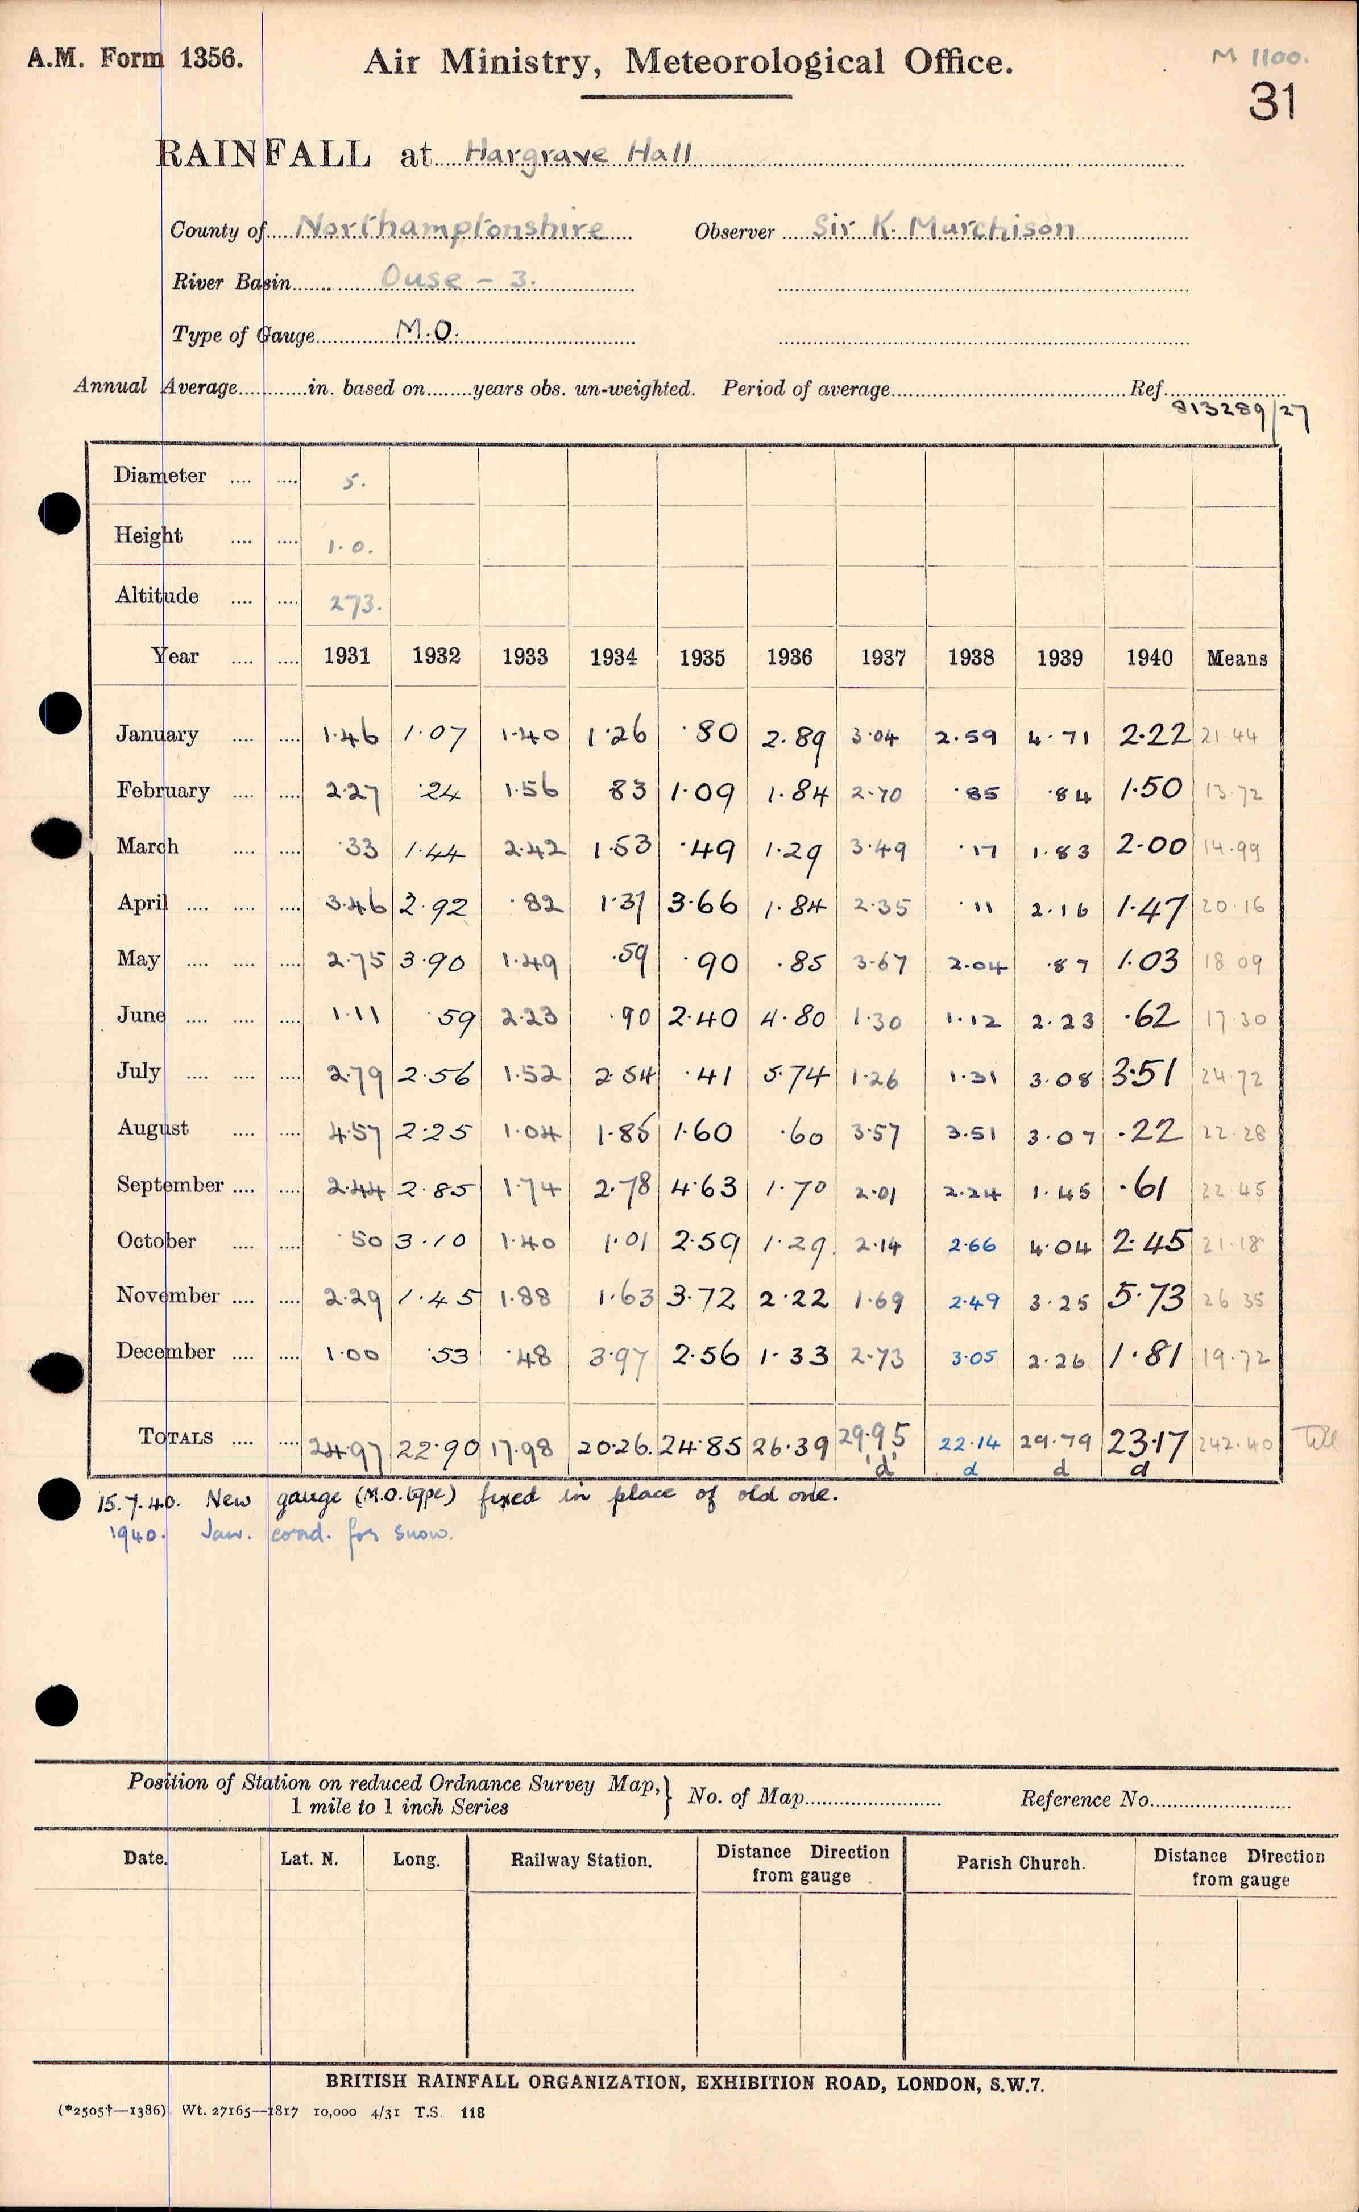 A.M. Form 1356. Air Ministry, Meteorological Office. M 1100.
31
RAINFALL at Hargrave Hall
County of Northamptonshire Observer Sir K. Murchison
River Basin Ouse - 3.
Type of Gauge M.O.
Annual Average in. based on years obs. un-weighted. Period of average Ref.
813289/27
Diameter 5.
Height 1.0.
Altitude 273.
Year 1931 1932 1933 1934 1935 1936 1937 1938 1939 1940 Means
January 1.46 1.07 1.40 1.26 .80 2.89 3.04 2.59 4.71 2.22 21.44
February 2.27 .24 1.56 83 1.09 1.84 2.70 .85 .84 1.50 13.72
March .33 1.44 2.42 1.53 .49 1.29 3.49 .17 1.83 2.00 14.99
April 3.46 2.92 .82 1.37 3.66 1.84 2.35 .11 2.16 1.47 20.16
May 2.75 3.90 1.49 .59 .90 .85 3.67 2.04 .87 1.03 18 09
June 1.11 .59 2.23 .90 2.40 4.80 1.30 1.12 2.23 .62 17.30
July 2.79 2.56 1.52 2.54 .41 5.74 1.26 1.31 3.08 3.51 24.72
August 4.57 2.25 1.04 1.85 1.60 .60 3.57 3.51 3.07 .22 22.28
September 2.44 2.85 1.74 2.78 4.63 1.70 2.01 2.24 1.45 .61 22.45
October .50 3.10 1.40 1.01 2.59 1.29 2.14 2.66 4.04 2.45 21.18
November 2.29 1.45 1.88 1.63 3.72 2.22 1.69 2.49 3.25 5.73 26 35
December 1.00 .53 .48 3.97 2.56 1.33 2.73 3.05 2.26 1.81 19.72
TOTALS 24.97 22.90 17.98 20.26 24.85 26.39 29.95 22.14 29.79 23.17 242.40
'd' d d d
15.7.40. New gauge (M.O. type) fixed in place of old one.
1940. Jan. cond. for snow.
Position of Station on reduced Ordnance Survey Map, } No. of Map Reference No.
1 mile to 1 inch Series
Date. Lat. N. Long. Railway Station. Distance Direction from gauge Parish Church. Distance Direction from gauge
BRITISH RAINFALL ORGANIZATION, EXHIBITION ROAD, LONDON, S.W.7.
(*2505†—1386) Wt. 27165—1817 10,000 4/31 T.S. 118